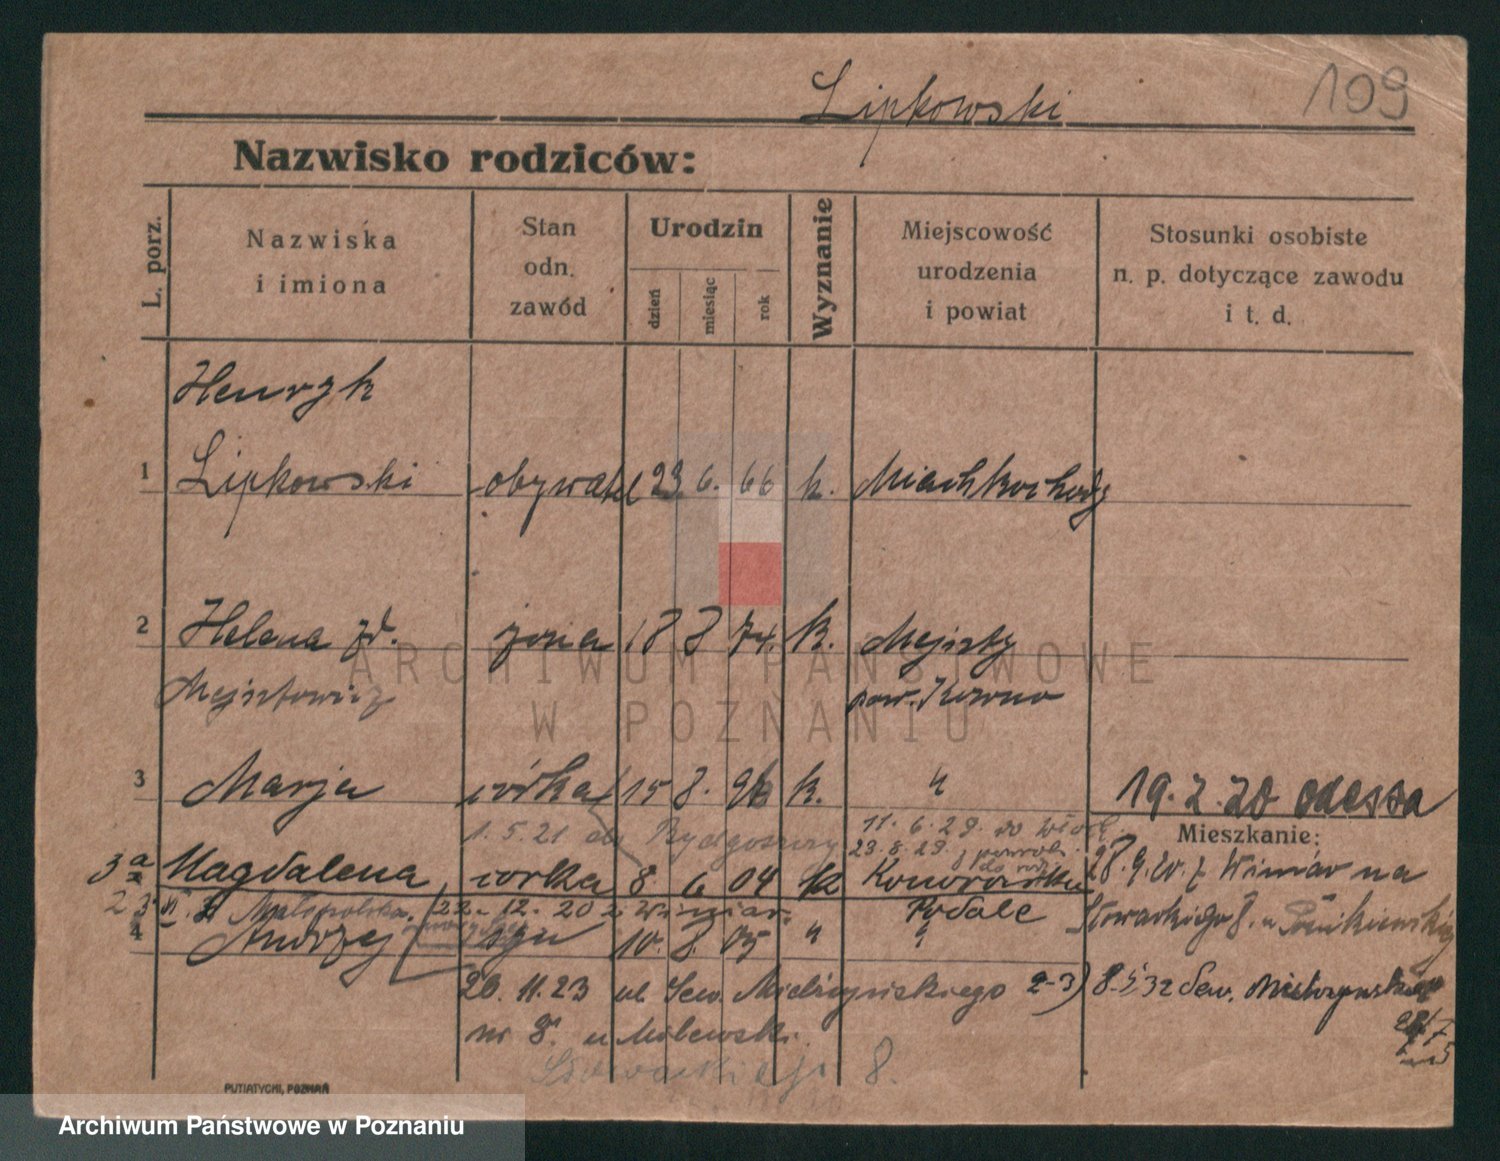 Lipkowski
109
Nazwisko rodziców:
L. porz.
Nazwiska
i imiona
Stan
odn.
zawód
Urodzin
dzień
miesiąc
rok
Wyznanie
Miejscowość
urodzenia
i powiat
Stosunki osobiste
n. p. dotyczące zawodu
i t. d.
Henryk
1 Lipkowski obywatel 23 6. 66 k.
2 Helena zd. żona 18 8 74. k. Mejszty
Mejsztowicz pow. Kowno
3 Marja córka 15 8. 96 k. " 19. 2. 20 Odessa
1. 5. 21 do Bydgoszczy 11. 6. 29. do
Mieszkanie:
23. 8. 29.
3a Magdalena córka 8. 6 04 k 28. 9. 20. z Winiar na
Małopolska. 22. 12. 20 z Winiar. Podole Słowackiego 8. u
4 Andrzej syn 10. 8. 05 " "
20. 11. 23 ul. Sew. Mielżyńskiego 2-3) 8. 5 32 Sew. Mielżyńskiego
nr 8. u Milewski.
Słowackiego 8.
PUTIATYCKI, POZNAŃ
ARCHIWUM PAŃSTWOWE
W POZNANIU
Archiwum Państwowe w Poznaniu